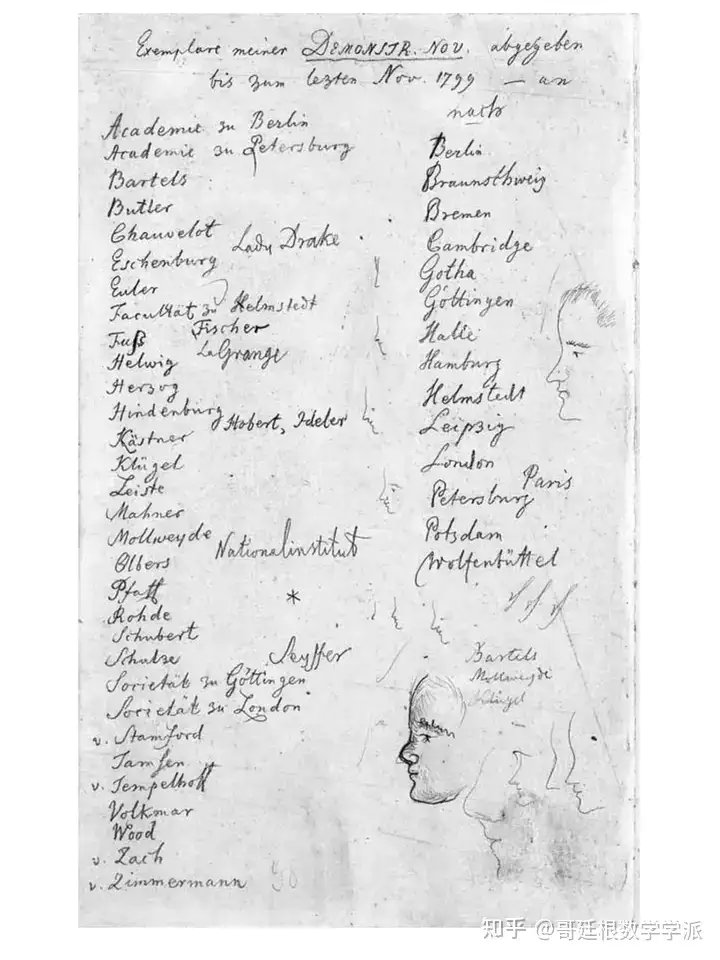 Exemplare meiner DEMONSTR. NOV. abgegeben
bis zum lezten Nov. 1799 — an
nach
Academie zu Berlin
Academie zu Petersburg
Bartels
Butler
Chauvelot Lady Drake
Eschenburg
Euler
Facultät zu Helmstedt
Fuß Fischer
Helwig LaGrange
Herzog
Hindenburg Hobert, Ideler
Kästner
Klügel
Leiste
Mahner
Mollweyde Nationalinstitut
Olbers
Pfaff
*
Rohde
Schubert
Schulze Seyffer
Societät zu Göttingen
Societät zu London
v. Stamford
Jamsen
v. Tempelhoff
Volkmar
Wood
v. Zach
v. Zimmermann
Berlin
Braunschweig
Bremen
Cambridge
Gotha
Göttingen
Halle
Hamburg
Helmstedt
Leipzig
London Paris
Petersburg
Potsdam
Wolfenbüttel
Bartels
Mollweyde
Klügel
知乎 @哥廷根数学学派